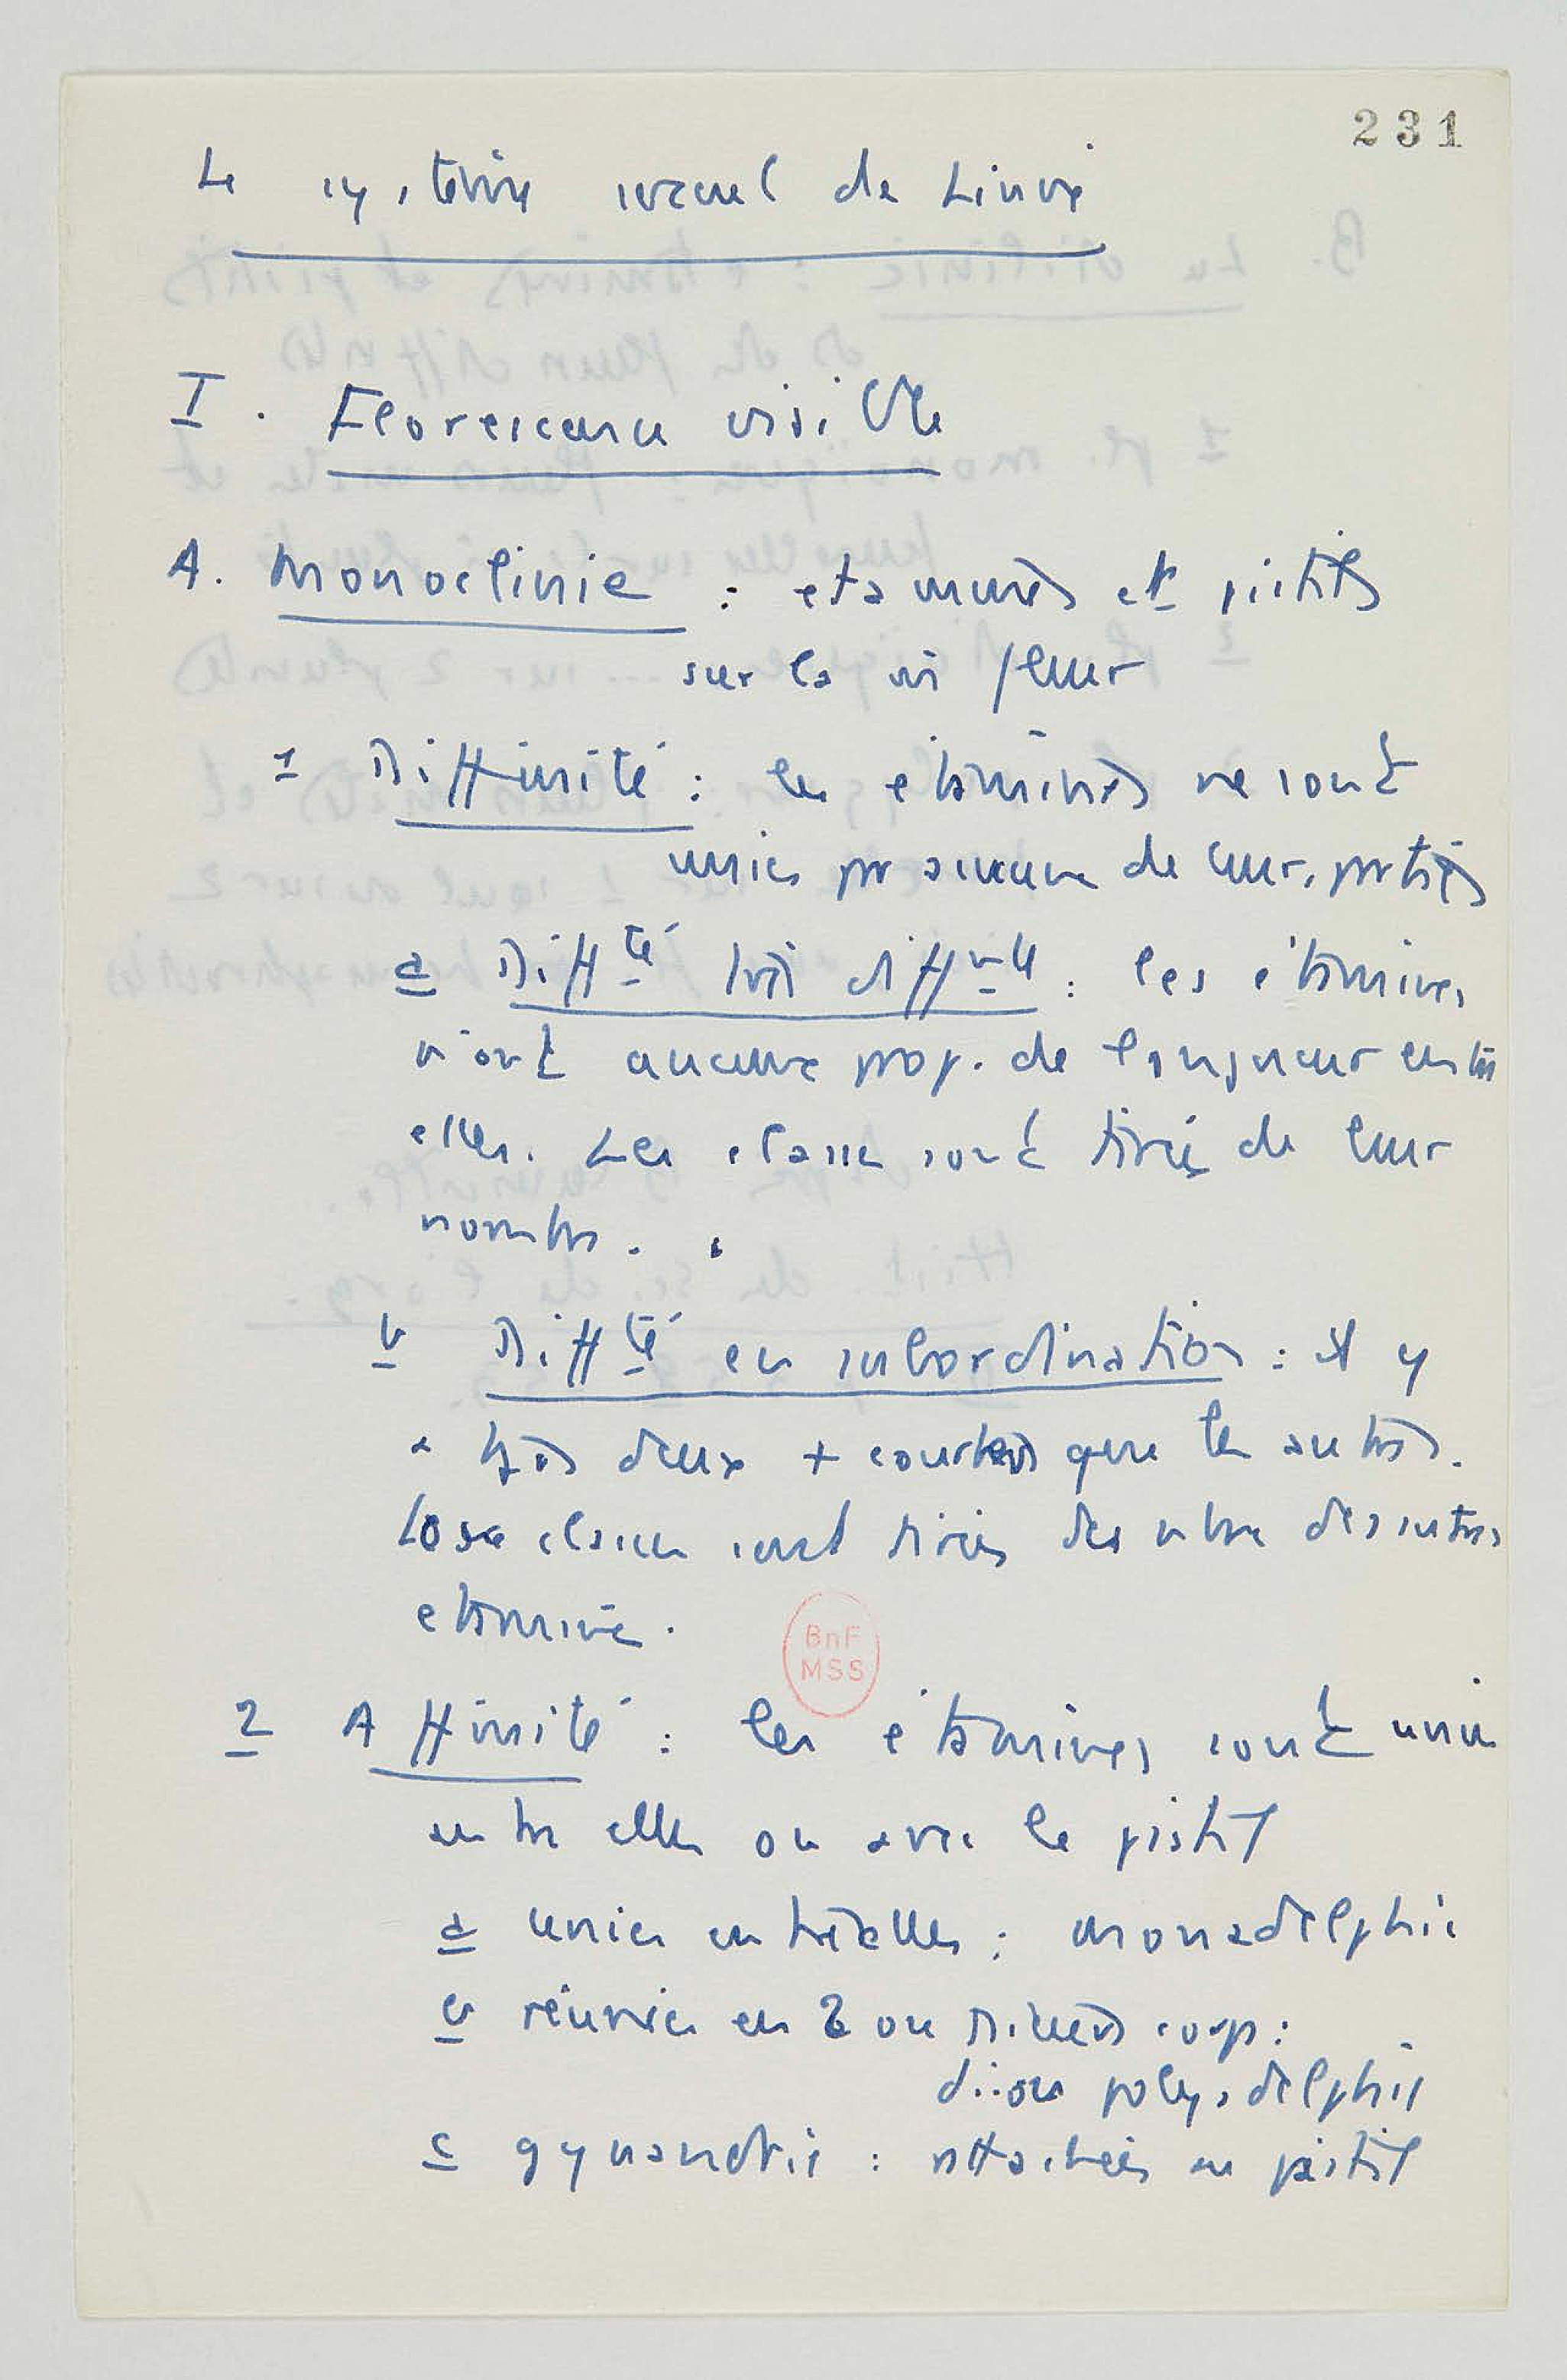 231
Le système sexuel de Linné
I. Florescence visible
A. Monoclinie : etamines et pistils
sur la m fleur
1 Diffinité : les étamines ne sont
unies par aucune de leurs parties
a Diffté : les étamines
n'ont aucune prop. de longueur entre
elles. Les classes sont tirées de leur
nombre.
b Diffté en subordination : il y
a tjs deux + courtes que les autres.
classes sont tirées des nbre des autres
etamines.
BnF
MSS
2 Affinité : les étamines sont unies
entre elles ou avec le pistil
a unies entre elles : monadelphie
b réunies en 2 ou corps :
di ou polyadelphie
c gynandrie : attachées au pistil